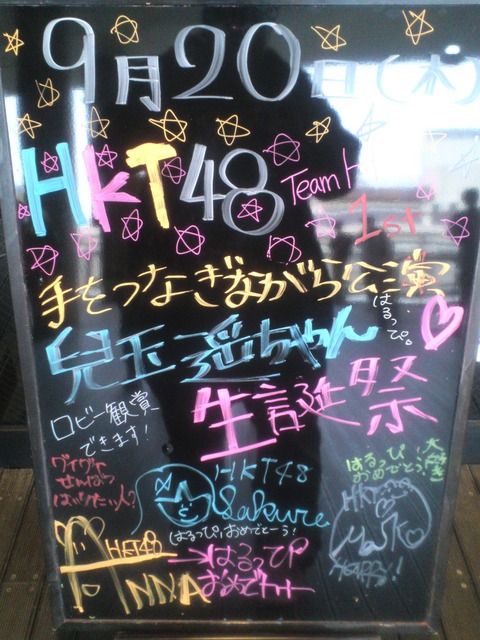 9月20日(木)
HKT48 Team H
1st
手をつなぎながら公演
はるっぴ。
兒玉遥ちゃん
生誕祭
ロビー観賞
できます!
HKT48
Sakura
はるっぴ、おめでとう!
大好き
はるっぴ!
おめでとう!
HKT48
HAPPY!
HKT48
ANNA
→はるっぴ
おめでとー